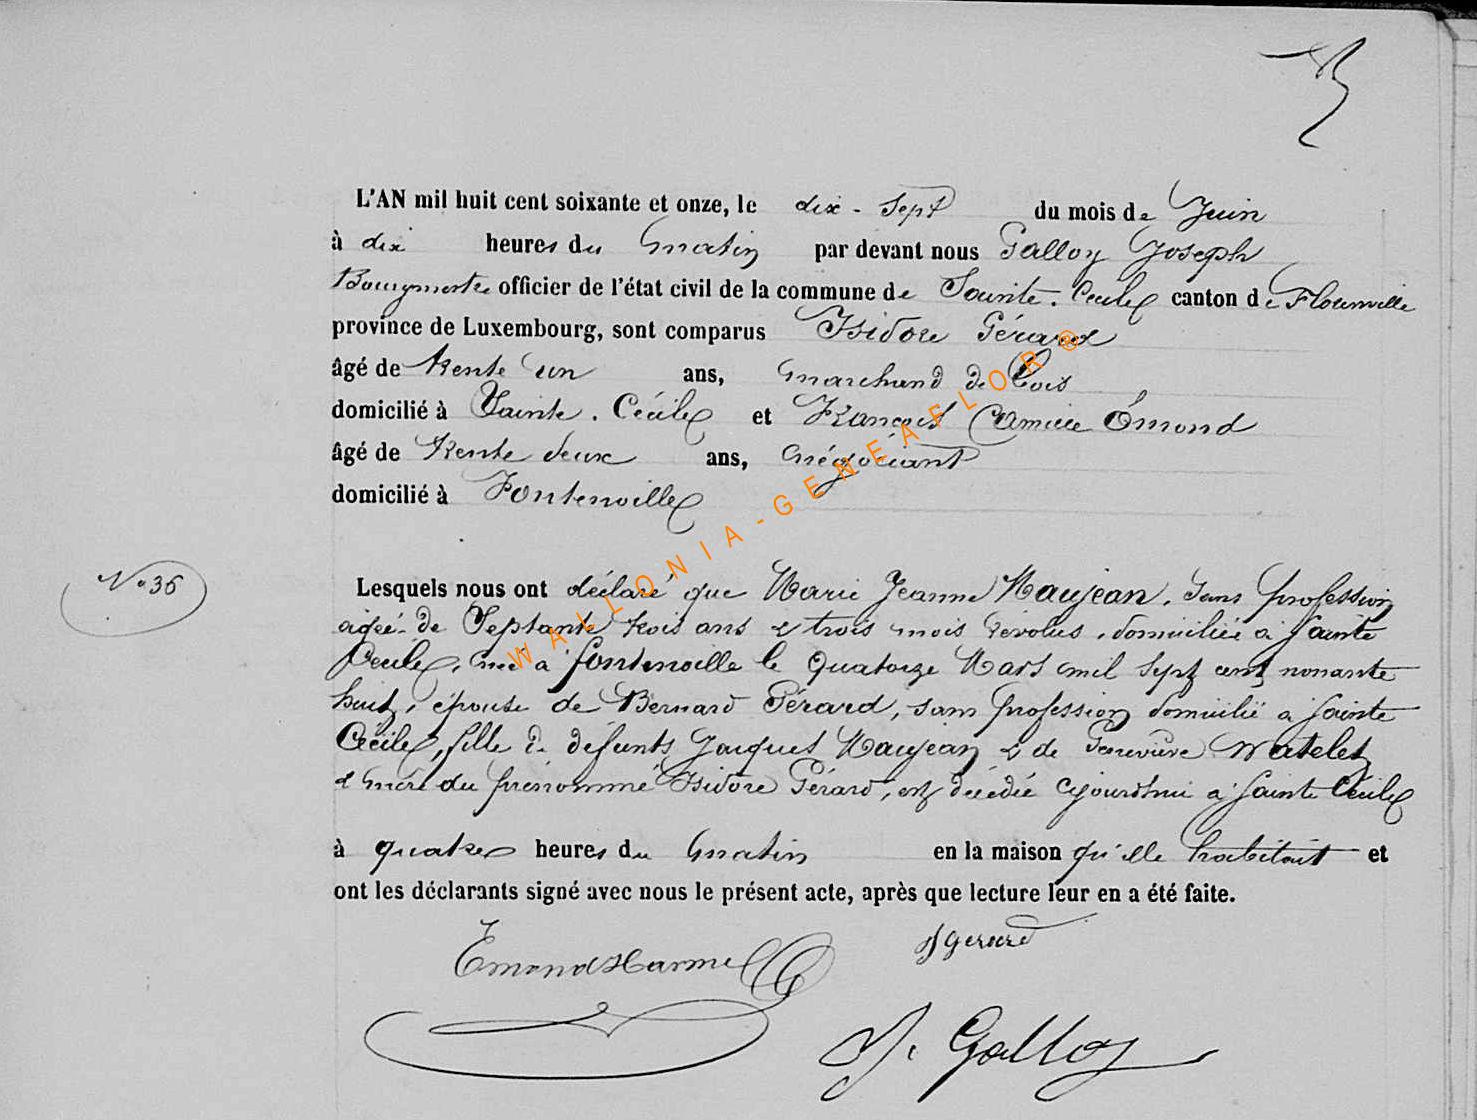 L'AN mil huit cent soixante et onze, le dix-sept du mois de Juin
à dix heures du matin par devant nous Galloy Joseph
Bourgmestre officier de l'état civil de la commune de Sainte-Cécile canton de Florenville
province de Luxembourg, sont comparus Isidore Gérard
âgé de trente un ans, marchand de bois
domicilié à Sainte-Cécile et François Camille Émond
âgé de trente deux ans, négociant
domicilié à Fontenoille
N° 36
Lesquels nous ont déclaré que Marie Jeanne Maujean, sans profession
agée de septante trois ans & trois mois révolus, domiciliée à Sainte
Cécile, née à Fontenoille le quatorze Mars mil sept cent nonante
huit, épouse de Bernard Gérard, sans profession domicilié à Sainte
Cécile, fille de défunts Jacques Maujean & de Genevieve Watelet
& mère du prénommé Isidore Gérard, est décédé cejourd'hui à Sainte Cécile
à quatre heures du matin en la maison qu'elle habitait et
ont les déclarants signé avec nous le présent acte, après que lecture leur en a été faite.
Emond Harmel
J Gerard
J. Galloy
WALLONIA-GENEAFLOR®